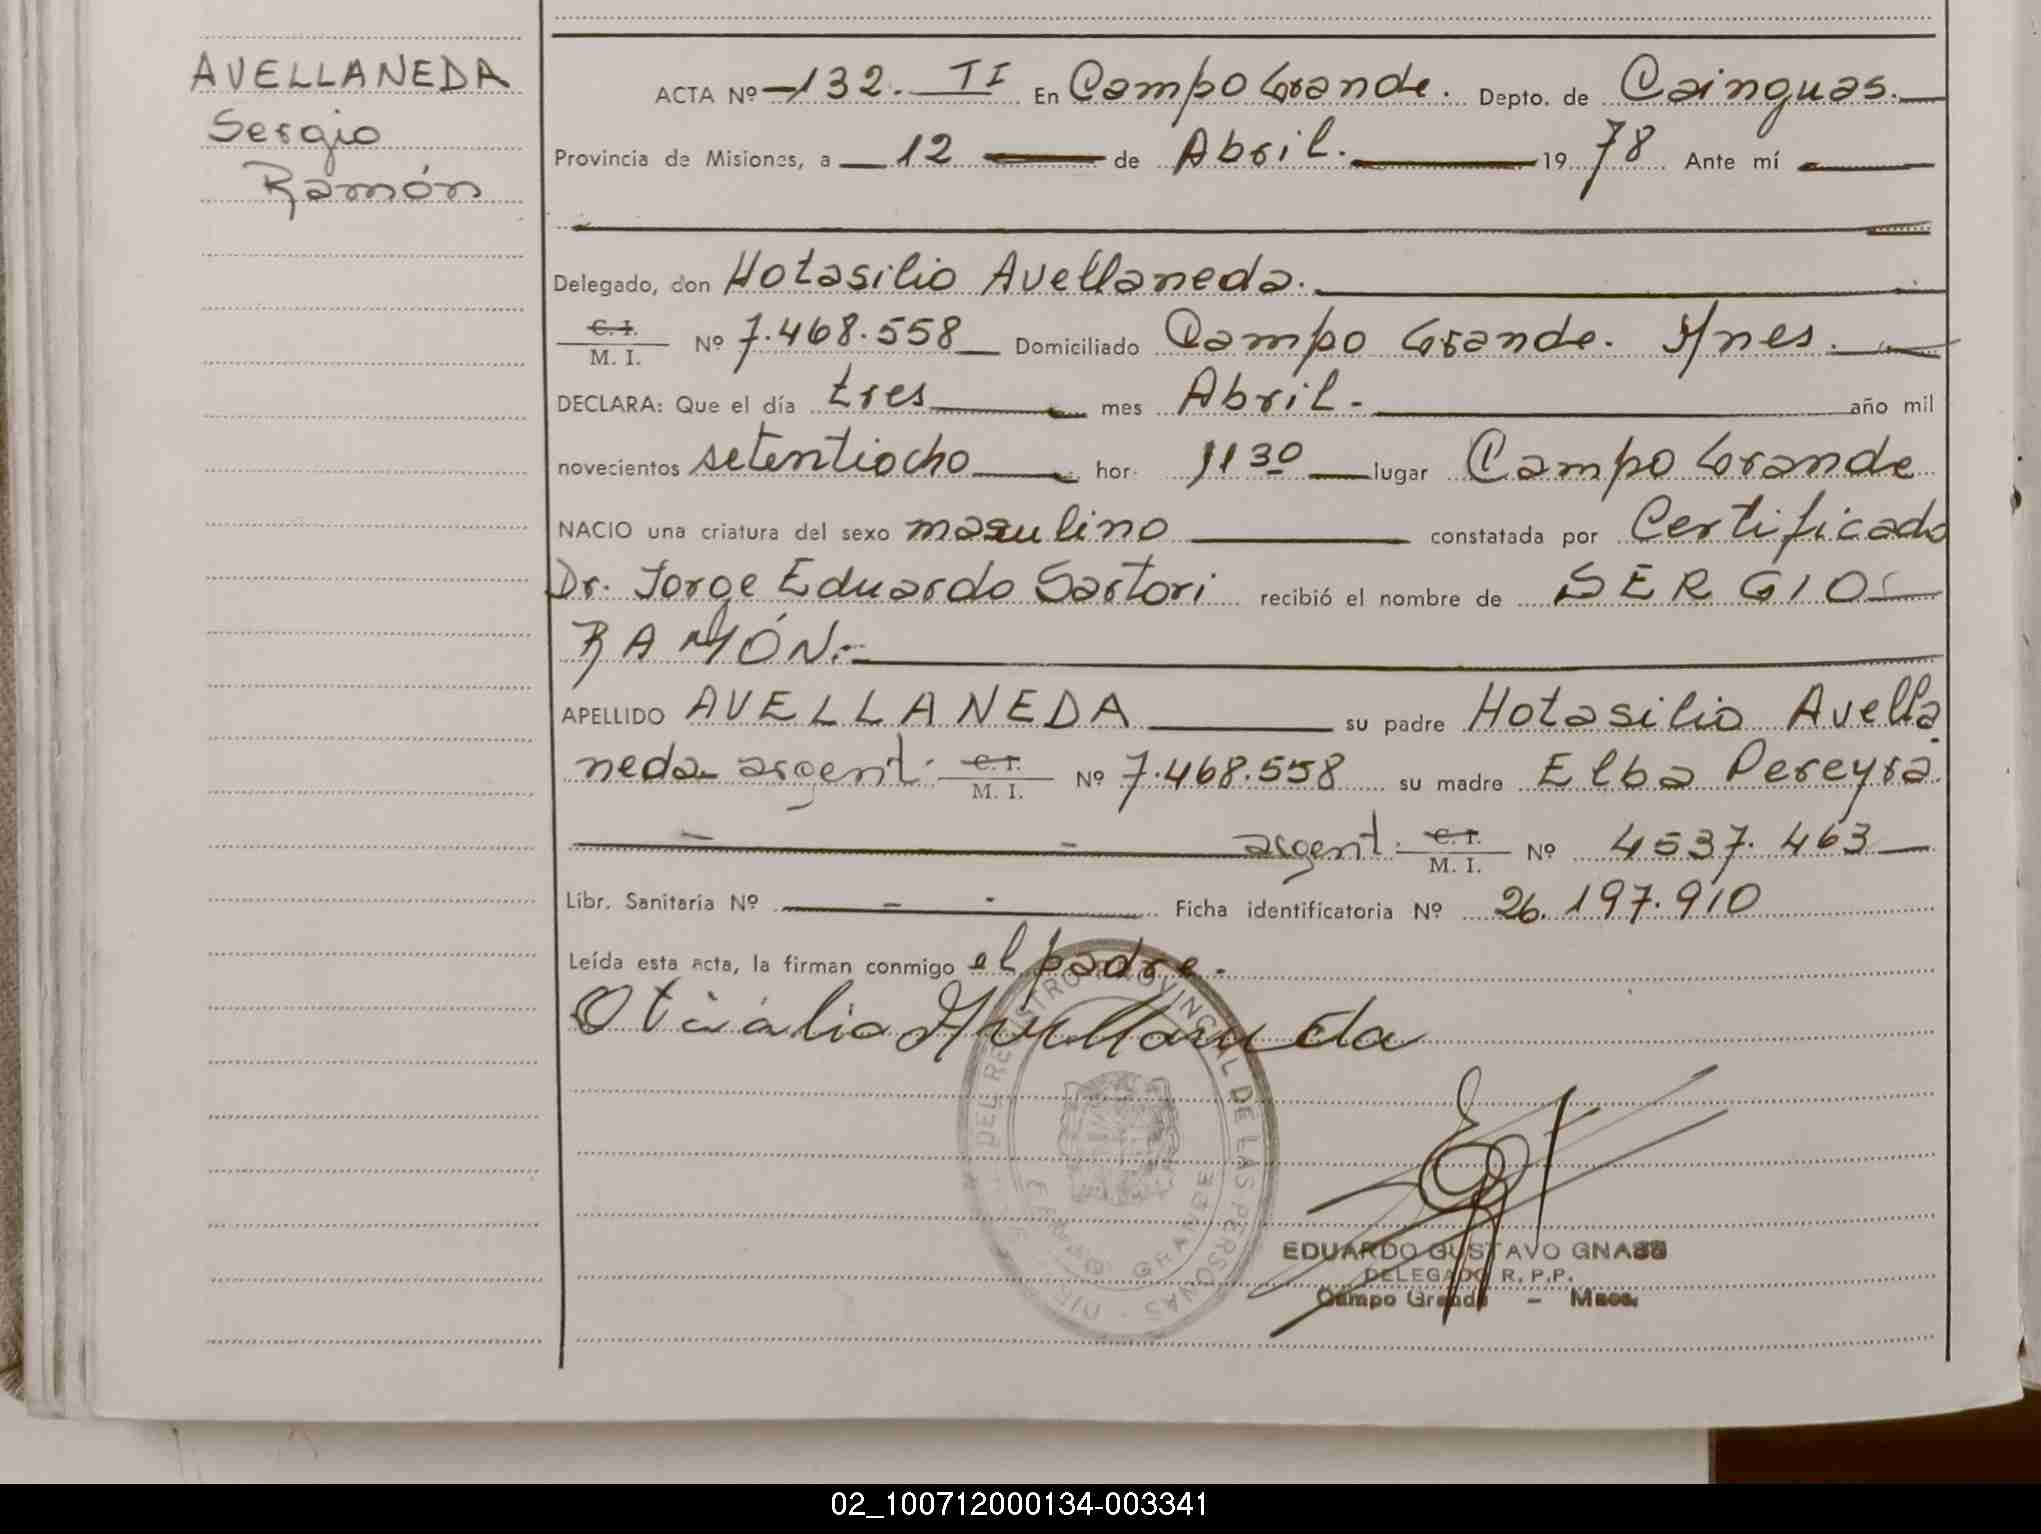 AVELLANEDA
Sergio
Ramón
ACTA Nº 132. TI En Campo Grande. Depto. de Cainguas.
Provincia de Misiones, a 12 de Abril. 1978 Ante mí
Delegado, don Hotasilio Avellaneda.
C. I.
M. I. Nº 7.468.558 Domiciliado Campo Grande. Mnes.
DECLARA: Que el día tres mes Abril. año mil
novecientos setentiocho hor. 11 30 lugar Campo Grande
NACIO una criatura del sexo masculino constatada por Certificado
Dr. Jorge Eduardo Sartori recibió el nombre de SERGIO
RAMÓN.
APELLIDO AVELLANEDA su padre Hotasilio Avella
neda argent. C. I. M. I. Nº 7.468.558 su madre Elba Pereyra.
argent. C. I. M. I. Nº 4537.463
Libr. Sanitaria Nº Ficha identificatoria Nº 26.197.910
Leída esta acta, la firman conmigo el padre.
Avellaneda
DEL REGISTRO PROVINCIAL DE LAS PERSONAS
GRANDE
EDUARDO GUSTAVO GNASS
DELEGADO R. P. P.
Campo Grande - Mnes.
02_100712000134-003341